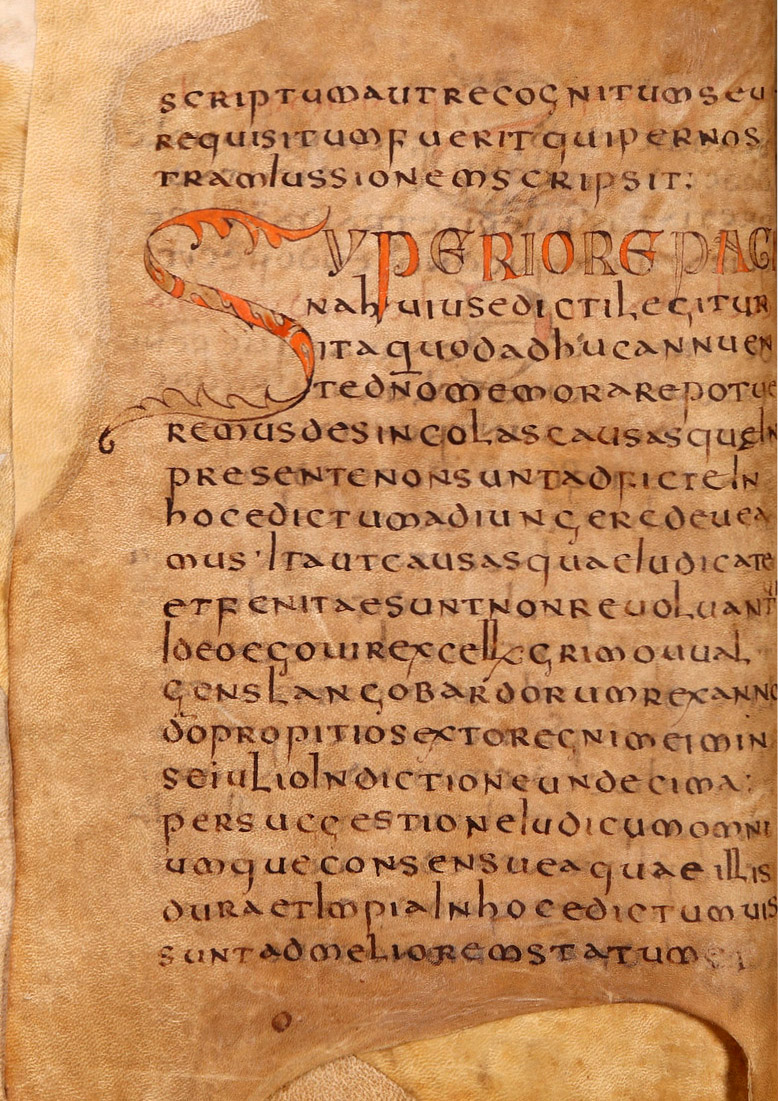 SCRIPTUMAUTRECOGNITUMSEU
REQUISITUMFUERITQUIPERNOS
TRAMIUSSIONEMSCRIPSIT:
SUPERIOREPAGI
NAHUIUSEDICTILEGITUR
ITAQUODADHUCANNUEN
TEDÑOMEMORAREPOTUE
REMUSDESINCOLASCAUSASQUEIN
PRESENTENONSUNTADFICTEIN
HOCEDICTUMADIUNGEREDEUEA
MUS·ITAUTCAUSASQUAEIUDICATE
ETFENITAESUNTNONREUOLUANT
IDEOEGOUIREXCELLGRIMOUUAL
GENSLANGOBARDORUMREXANNO
D̄OPROPITIOSEXTOREGNIMEIMIN
SEIULIOINDICTIONEUNDECIMA:
PERSUGGESTIONEIUDICUMOMNI
UMQUECONSENSUEAQUAEILLIS
DURAETIMPIAINHOCEDICTUMUIS
SUNTADMELIOREMSTATUM